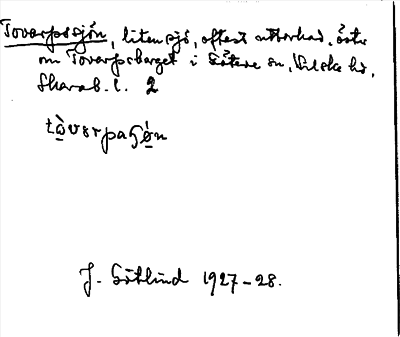 Tovarpssjön, liten sjö, oftast uttorkad, öster
om Tovarpsberget i Götene sn, Vilske hd,
Skarab. l. 2
tòvərpaʃø̀n
J. Götlind 1927-28.